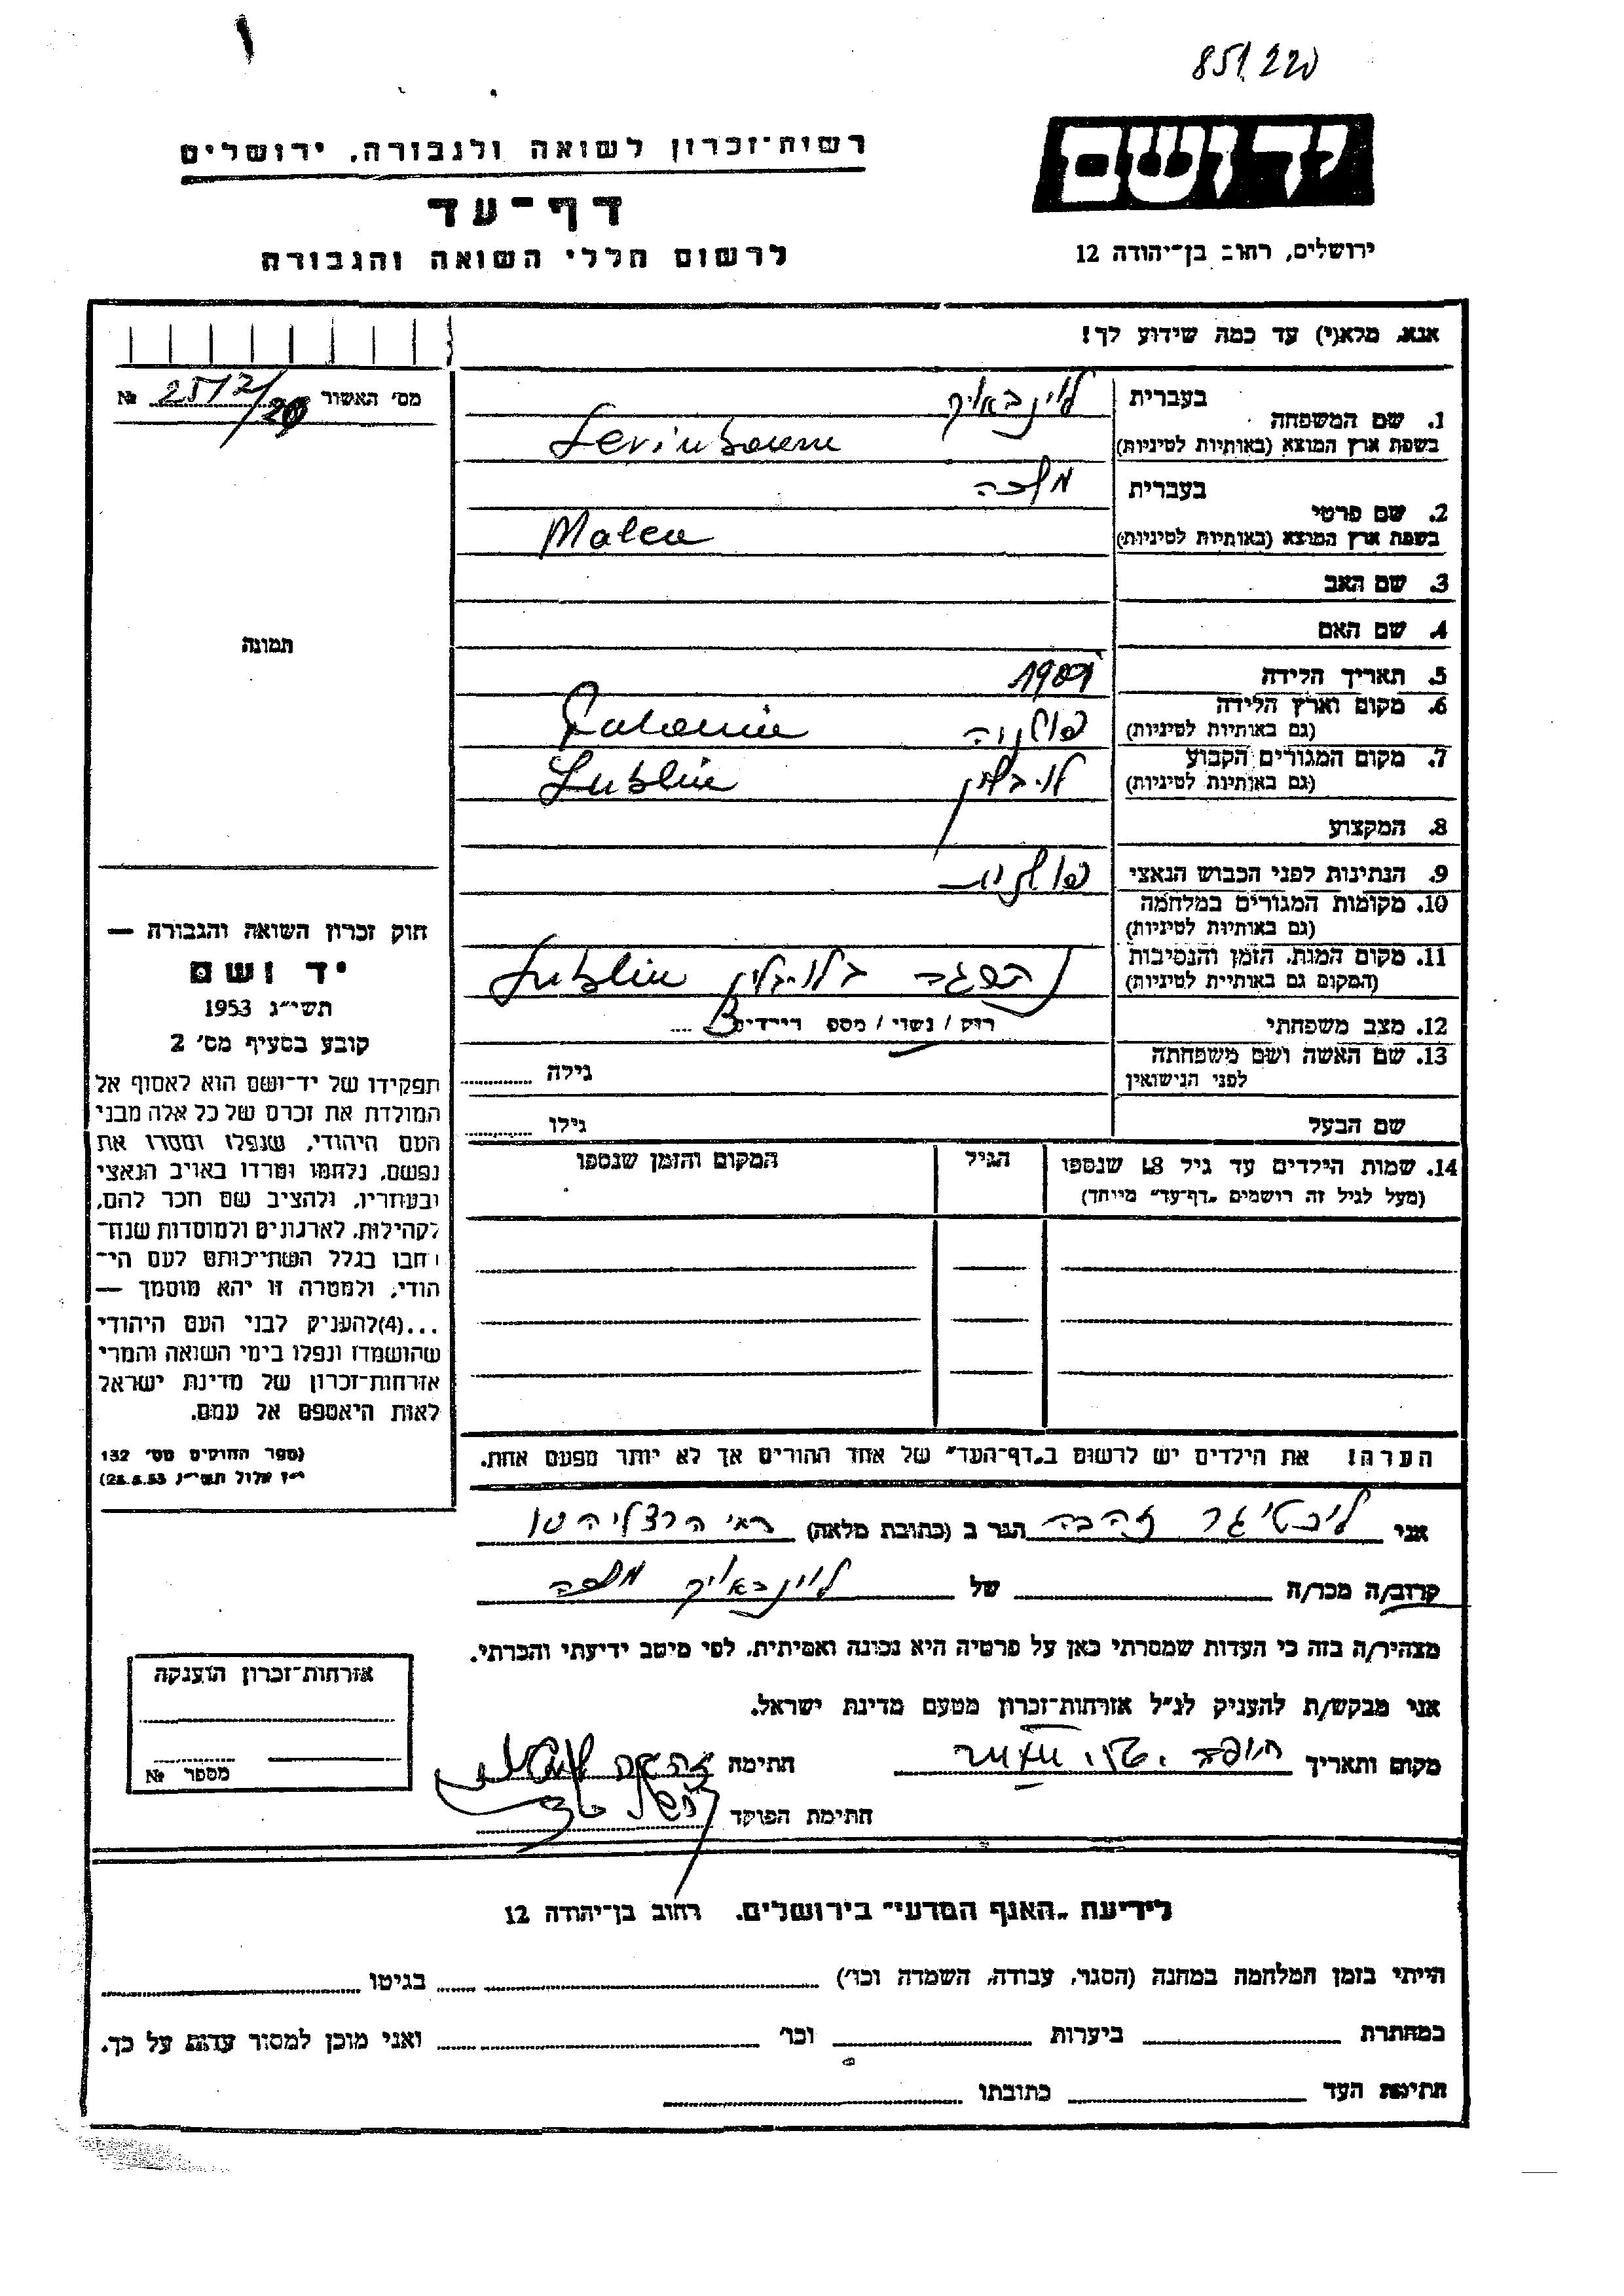 851/220
ידושם
רשות-זכרון לשואה ולגבורה, ירושלים
דף-עד
לרשום חללי השואה והגבורה
ירושלים, רחוב בן-יהודה 12
אנא, מלא(י) עד כמה שידוע לך!
מס' האשור 2512/20 №
1. שם המשפחה
בעברית
Levinboum
בשפת ארץ המוצא (באותיות לטיניות)
2. שם פרטי
בעברית מלכה
בשפת ארץ המוצא (באותיות לטיניות) Malca
3. שם האב
4. שם האם
תמונה
5. תאריך הלידה
6. מקום וארץ הלידה
(גם באותיות לטיניות) פולניה
7. מקום המגורים הקבוע
(גם באותיות לטיניות) לובלין Lublin
8. המקצוע
9. הנתינות לפני הכבוש הנאצי פולנית
10. מקומות המגורים במלחמה
(גם באותיות לטיניות)
11. מקום המות, הזמן והנסיבות
(המקום גם באותיות לטיניות) נהפגה בלובלין Lublin
12. מצב משפחתי רווק / נשוי / מספ' הילדים 3
13. שם האשה ושם משפחתה
לפני הנישואין גילה
שם הבעל גילו
14. שמות הילדים עד גיל 18 שנספו
(מעל לגיל זה רושמים „דף-עד" מיוחד)
הגיל
המקום והזמן שנספו
הערה! את הילדים יש לרשום ב„דף-העד" של אחד ההורים אך לא יותר מפעם אחת.
חוק זכרון השואה והגבורה —
יד ושם
תשי"ג 1953
קובע בסעיף מס' 2
תפקידו של יד-ושם הוא לאסוף אל
המולדת את זכרם של כל אלה מבני
העם היהודי, שנפלו ומסרו את
נפשם, נלחמו ומרדו באויב הנאצי
ובעוזריו, ולהציב שם וזכר להם,
לקהילות, לארגונים ולמוסדות שנח-
רבו בגלל השתייכותם לעם הי-
הודי, ולמטרה זו יהא מוסמך —
...(4)להעניק לבני העם היהודי
שהושמדו ונפלו בימי השואה והמרי
אזרחות-זכרון של מדינת ישראל
לאות היאספם אל עמם.
(ספר החוקים מס' 132
י"ז אלול תשי"ג, 28.8.53)
אני ליכטיגר זהבה הגר ב (כתובת מלאה)
קרוב/ה מכר/ה של מלכה
מצהיר/ה בזה כי העדות שמסרתי כאן על פרטיה היא נכונה ואמיתית, לפי מיטב ידיעתי והכרתי.
אני מבקש/ת להעניק לנ"ל אזרחות-זכרון מטעם מדינת ישראל.
מקום ותאריך חתימה
חתימת הפוקד
אזרחות-זכרון הוענקה
מספר №
לידיעת „האגף המדעי" בירושלים. רחוב בן-יהודה 12
הייתי בזמן המלחמה במחנה (הסגר, עבודה, השמדה וכו') בגיטו
במחתרת ביערות וכו' ואני מוכן למסור עדות על כך.
חתימת העד כתובתו